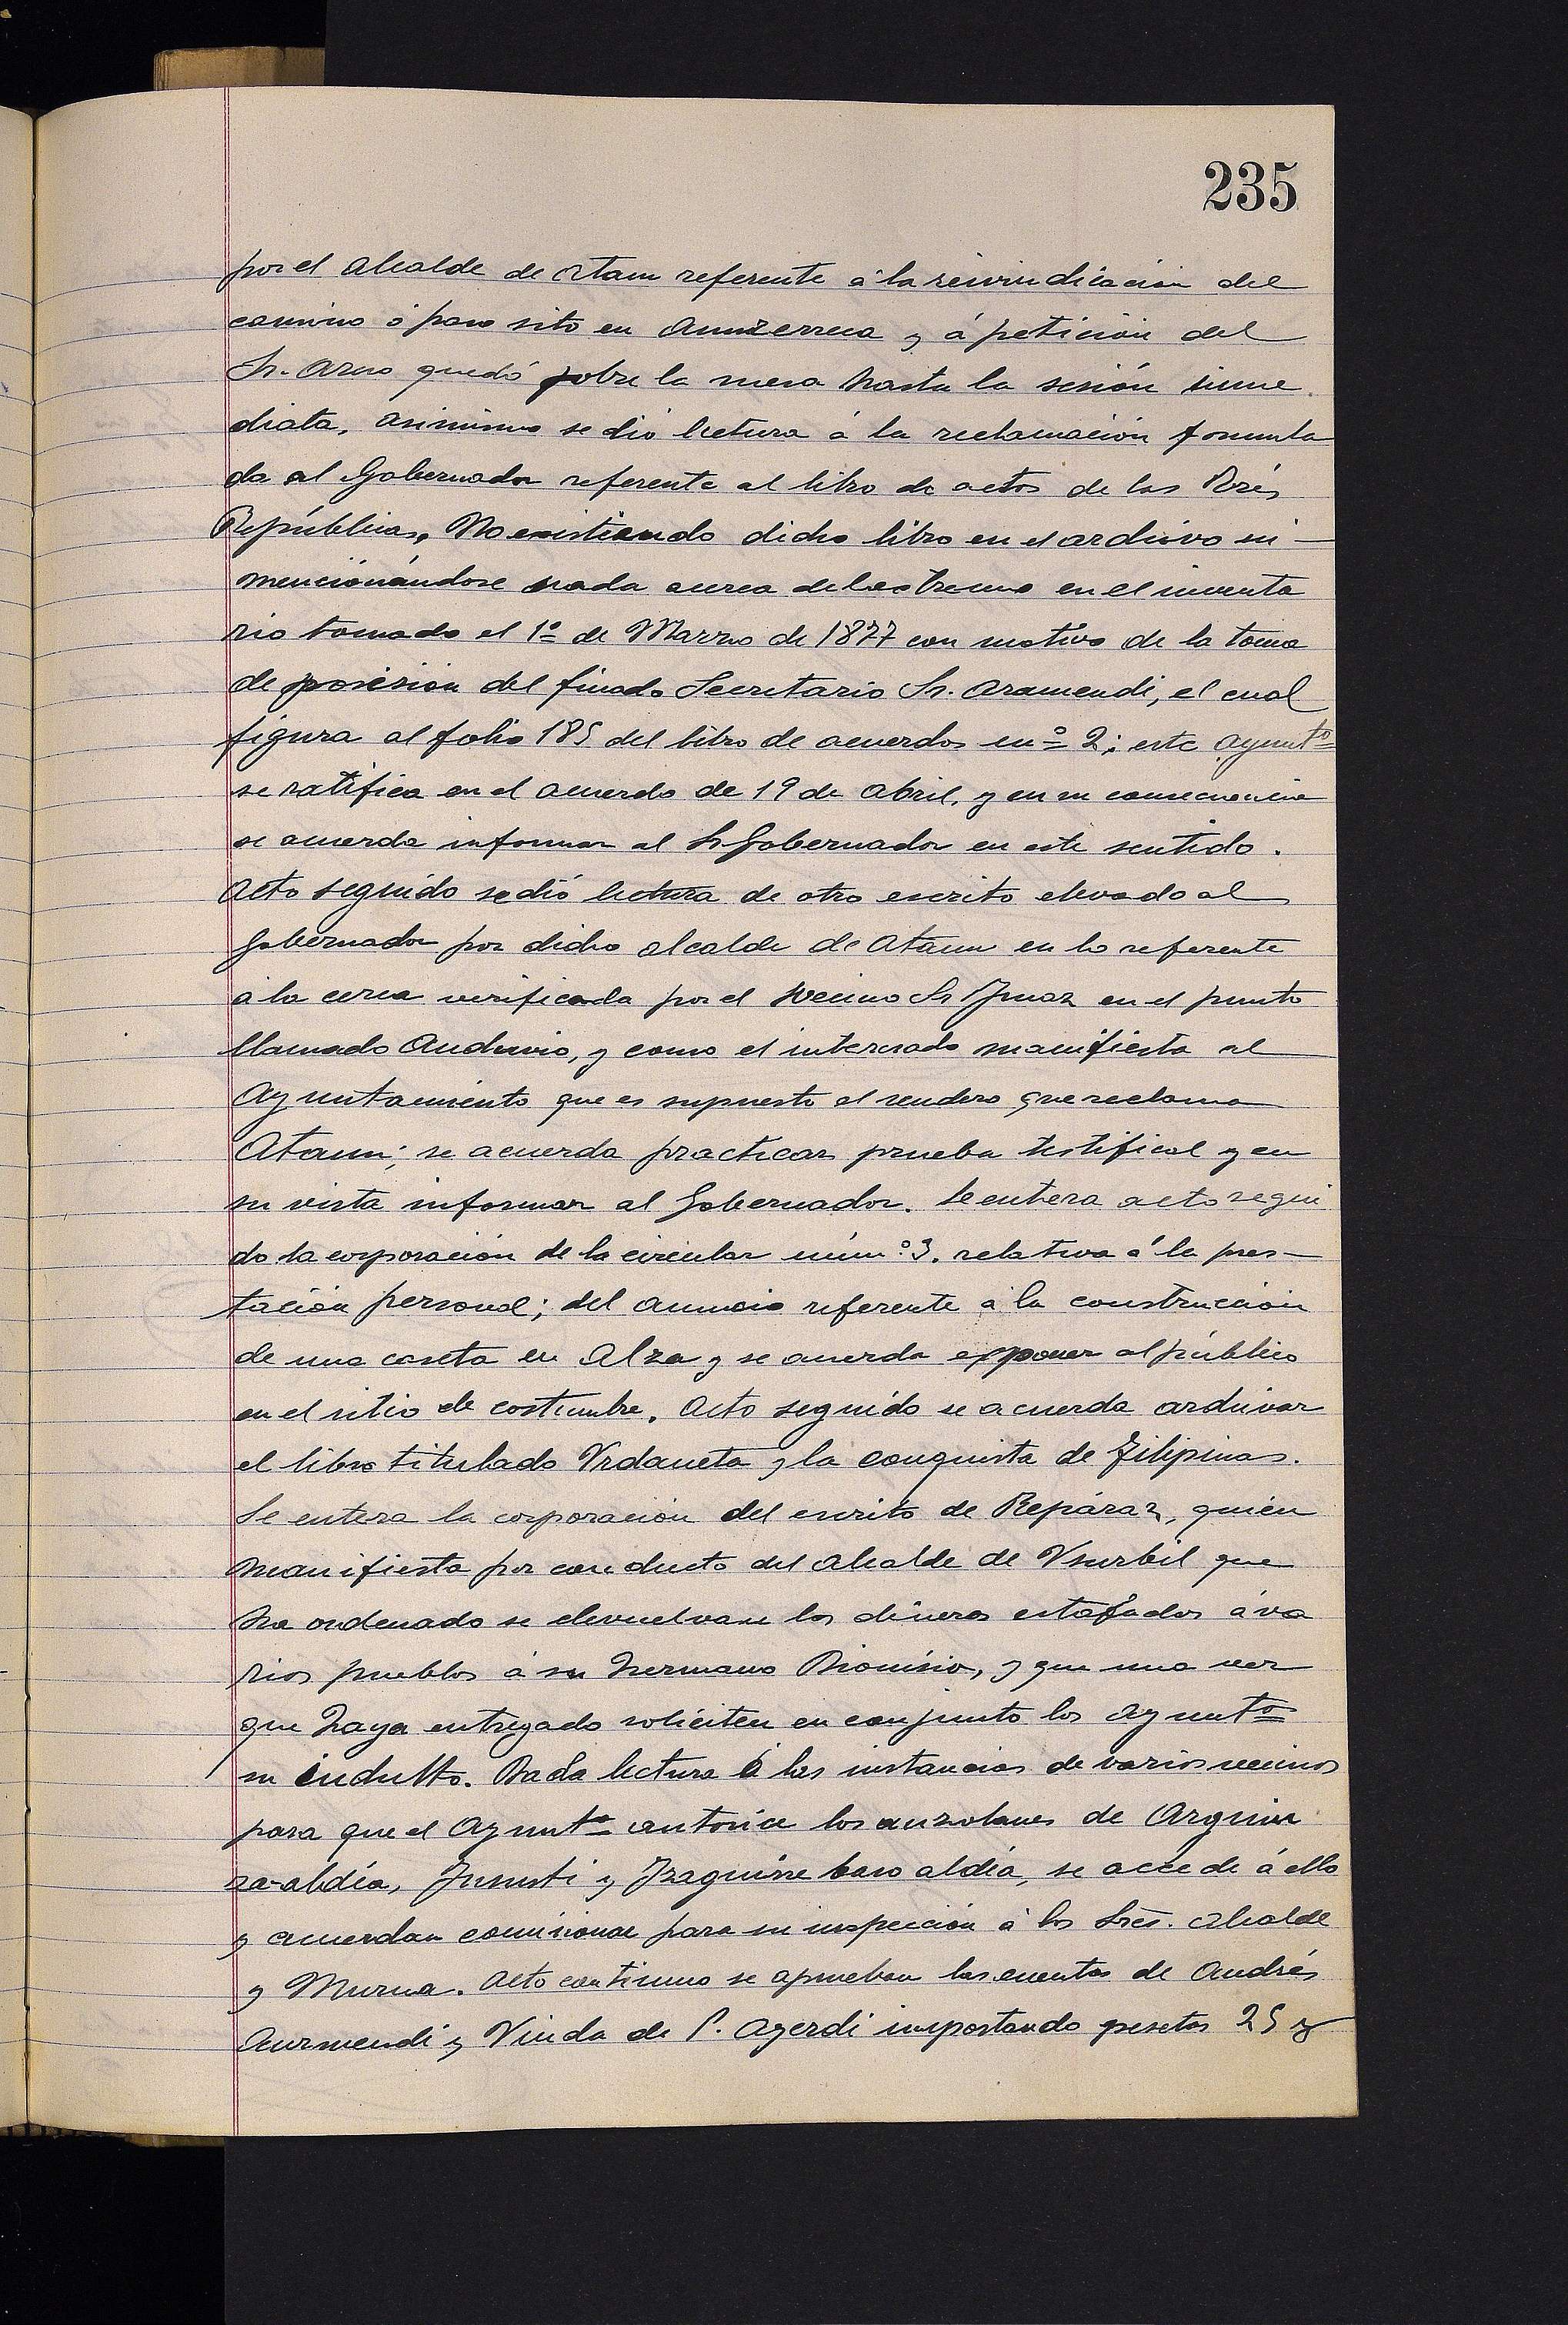 235
por el Alcalde de Ataun referente á la reivindicación del
camino ó paso sito en y á petición del
Sr. Arno quedó sobre la mesa hasta la sesión inme
diata, asimismo se dió lectura á la reclamación formula
da al Gobernador referente al libro de actos de las Tres
Repúblicas. No existiendo dicho libro en el archivo ni-
mencionándose nada acerca del extremo en el inventa
rio tomado el 1º de Marzo de 1877 con motivo de la toma
de posesión del finado Secretario Sr. Aramendi, el cual
figura al folio 185 del libro de acuerdos nº 2; este Ayuntº
se ratifica en el acuerdo de 19 de Abril, y en su consecuencia
se acuerda informar al Sr Gobernador en este sentido.
Acto seguido se dió lectura de otro escrito elevado al
Gobernador por dicho alcalde de Ataun en lo referente
á la cerca verificada por el vecino Sr en el punto
llamado y como el interesado manifiesta al
Ayuntamiento que es supuesto el sendero que reclama
Ataun; se acuerda practicar prueba testifical y en
su vista informar al Gobernador. Se entera acto segui
do la corporación de la circular núm.º 3. relativa á la pres-
tación personal; del anuncio referente á la construccion
de una caseta en Alza y se acuerda exponer al público
en el sitio de costumbre. Acto seguido se acuerda archivar
el libro titulado Vrdaneta y la conquista de Filipinas.
Se entera la corporación del escrito de Repáraz, quién
manifiesta por conducto del Alcalde de Vsurbil que
ha ordenado se devuelvan los dineros estafados á va
rios pueblos á su hermano Dionisio, y que una vez
que haya entregado soliciten en conjunto los Ayuntos
su indulto. Dada lectura á las instancias de varios vecinos
para que el Ayuntº autorice los de Arguin
za-aldéa, y Izaguirre baso aldéa, se accede á ello
y acuerdan comisionar para su inspección á los Sres. Alcalde
y Murua. Acto continuo se aprueban las cuentas de Andrés
Aurmendi y Viuda de P. Ayerdi importando pesetas 25 y